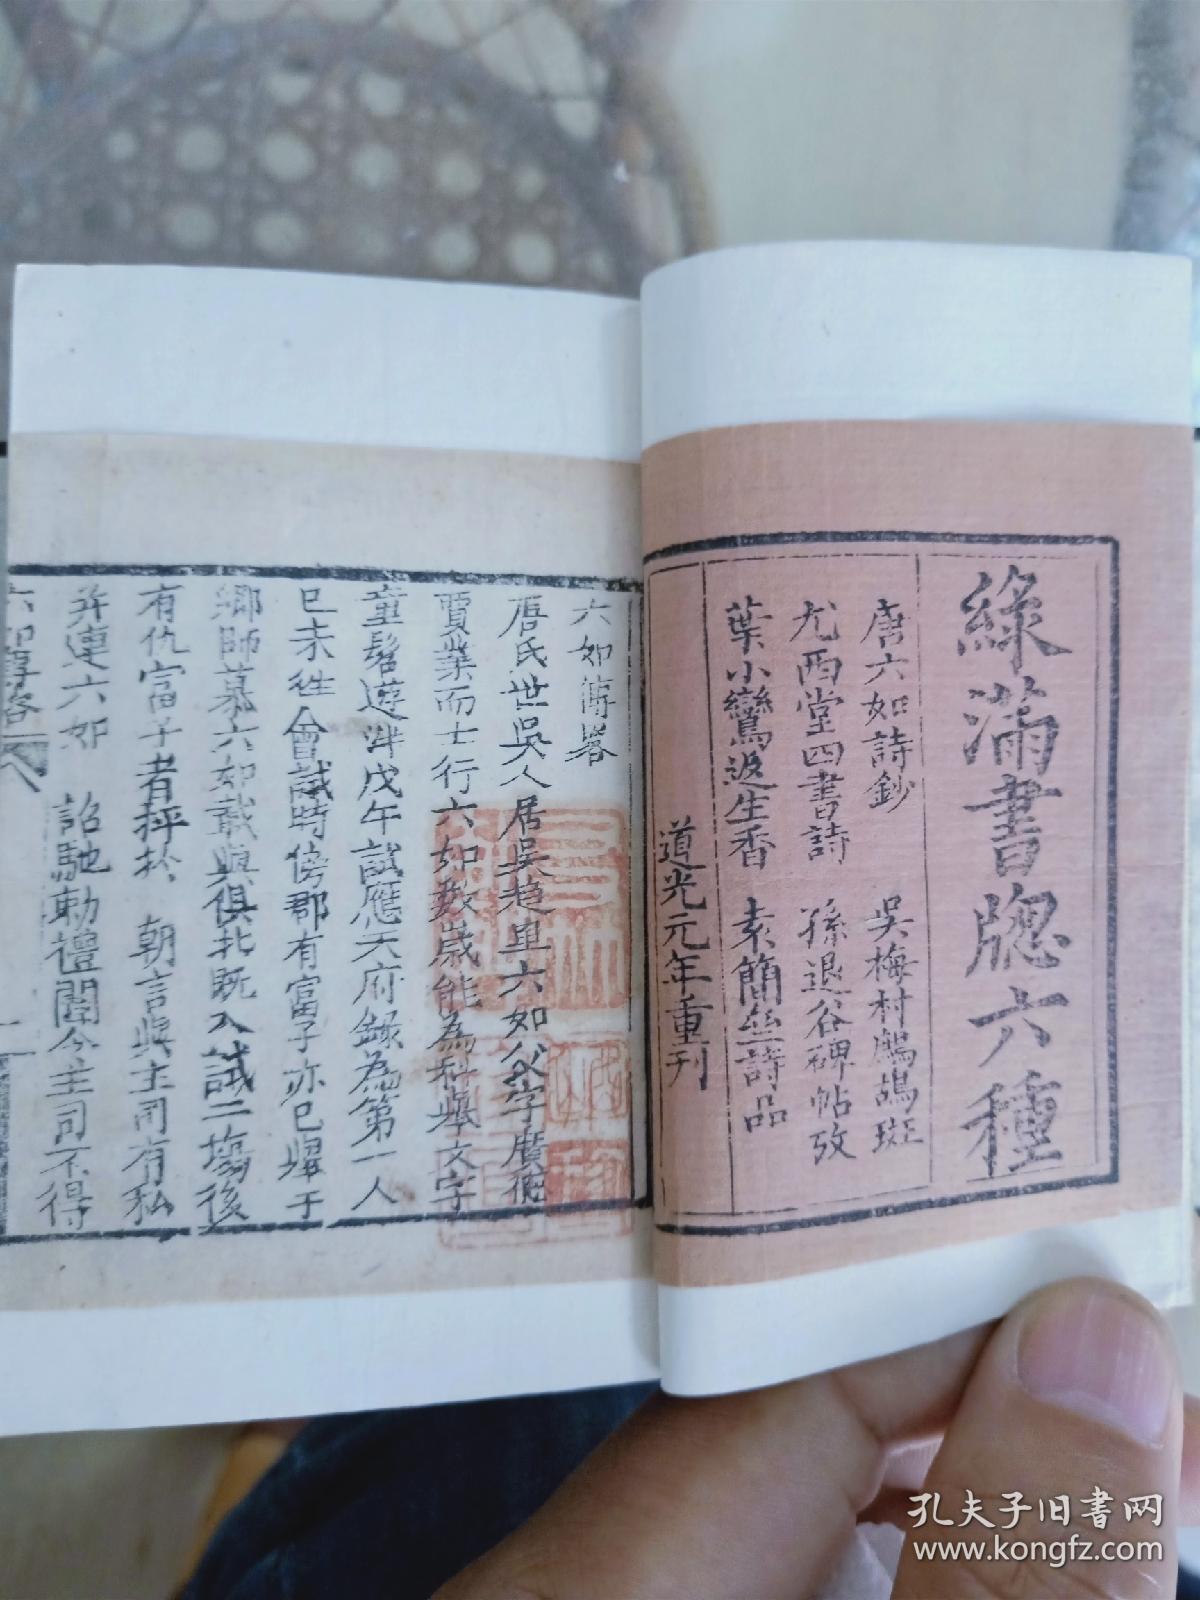 綠滿書牕六種
唐六如詩鈔　吳梅村鷓鴣斑
尤西堂四書詩　孫退谷碑帖攷
葉小鸞返生香　素簡齋詩品
道光元年重刊
六如傳畧
唐氏世吳人居吳趨里六如父字廣德
賈業而士行六如數歲能為科舉文字
童髫遊泮戊午試應天府錄為第一人
巳未徃會試時傍郡有富子亦巳舉于
鄉師慕六如載與俱北既入試二塲後
有仇富子者抨於　朝言與主司有私
并連六如　詔馳勅禮闈令主司不得
六如傳畧　一
孔夫子旧书网
www.kongfz.com